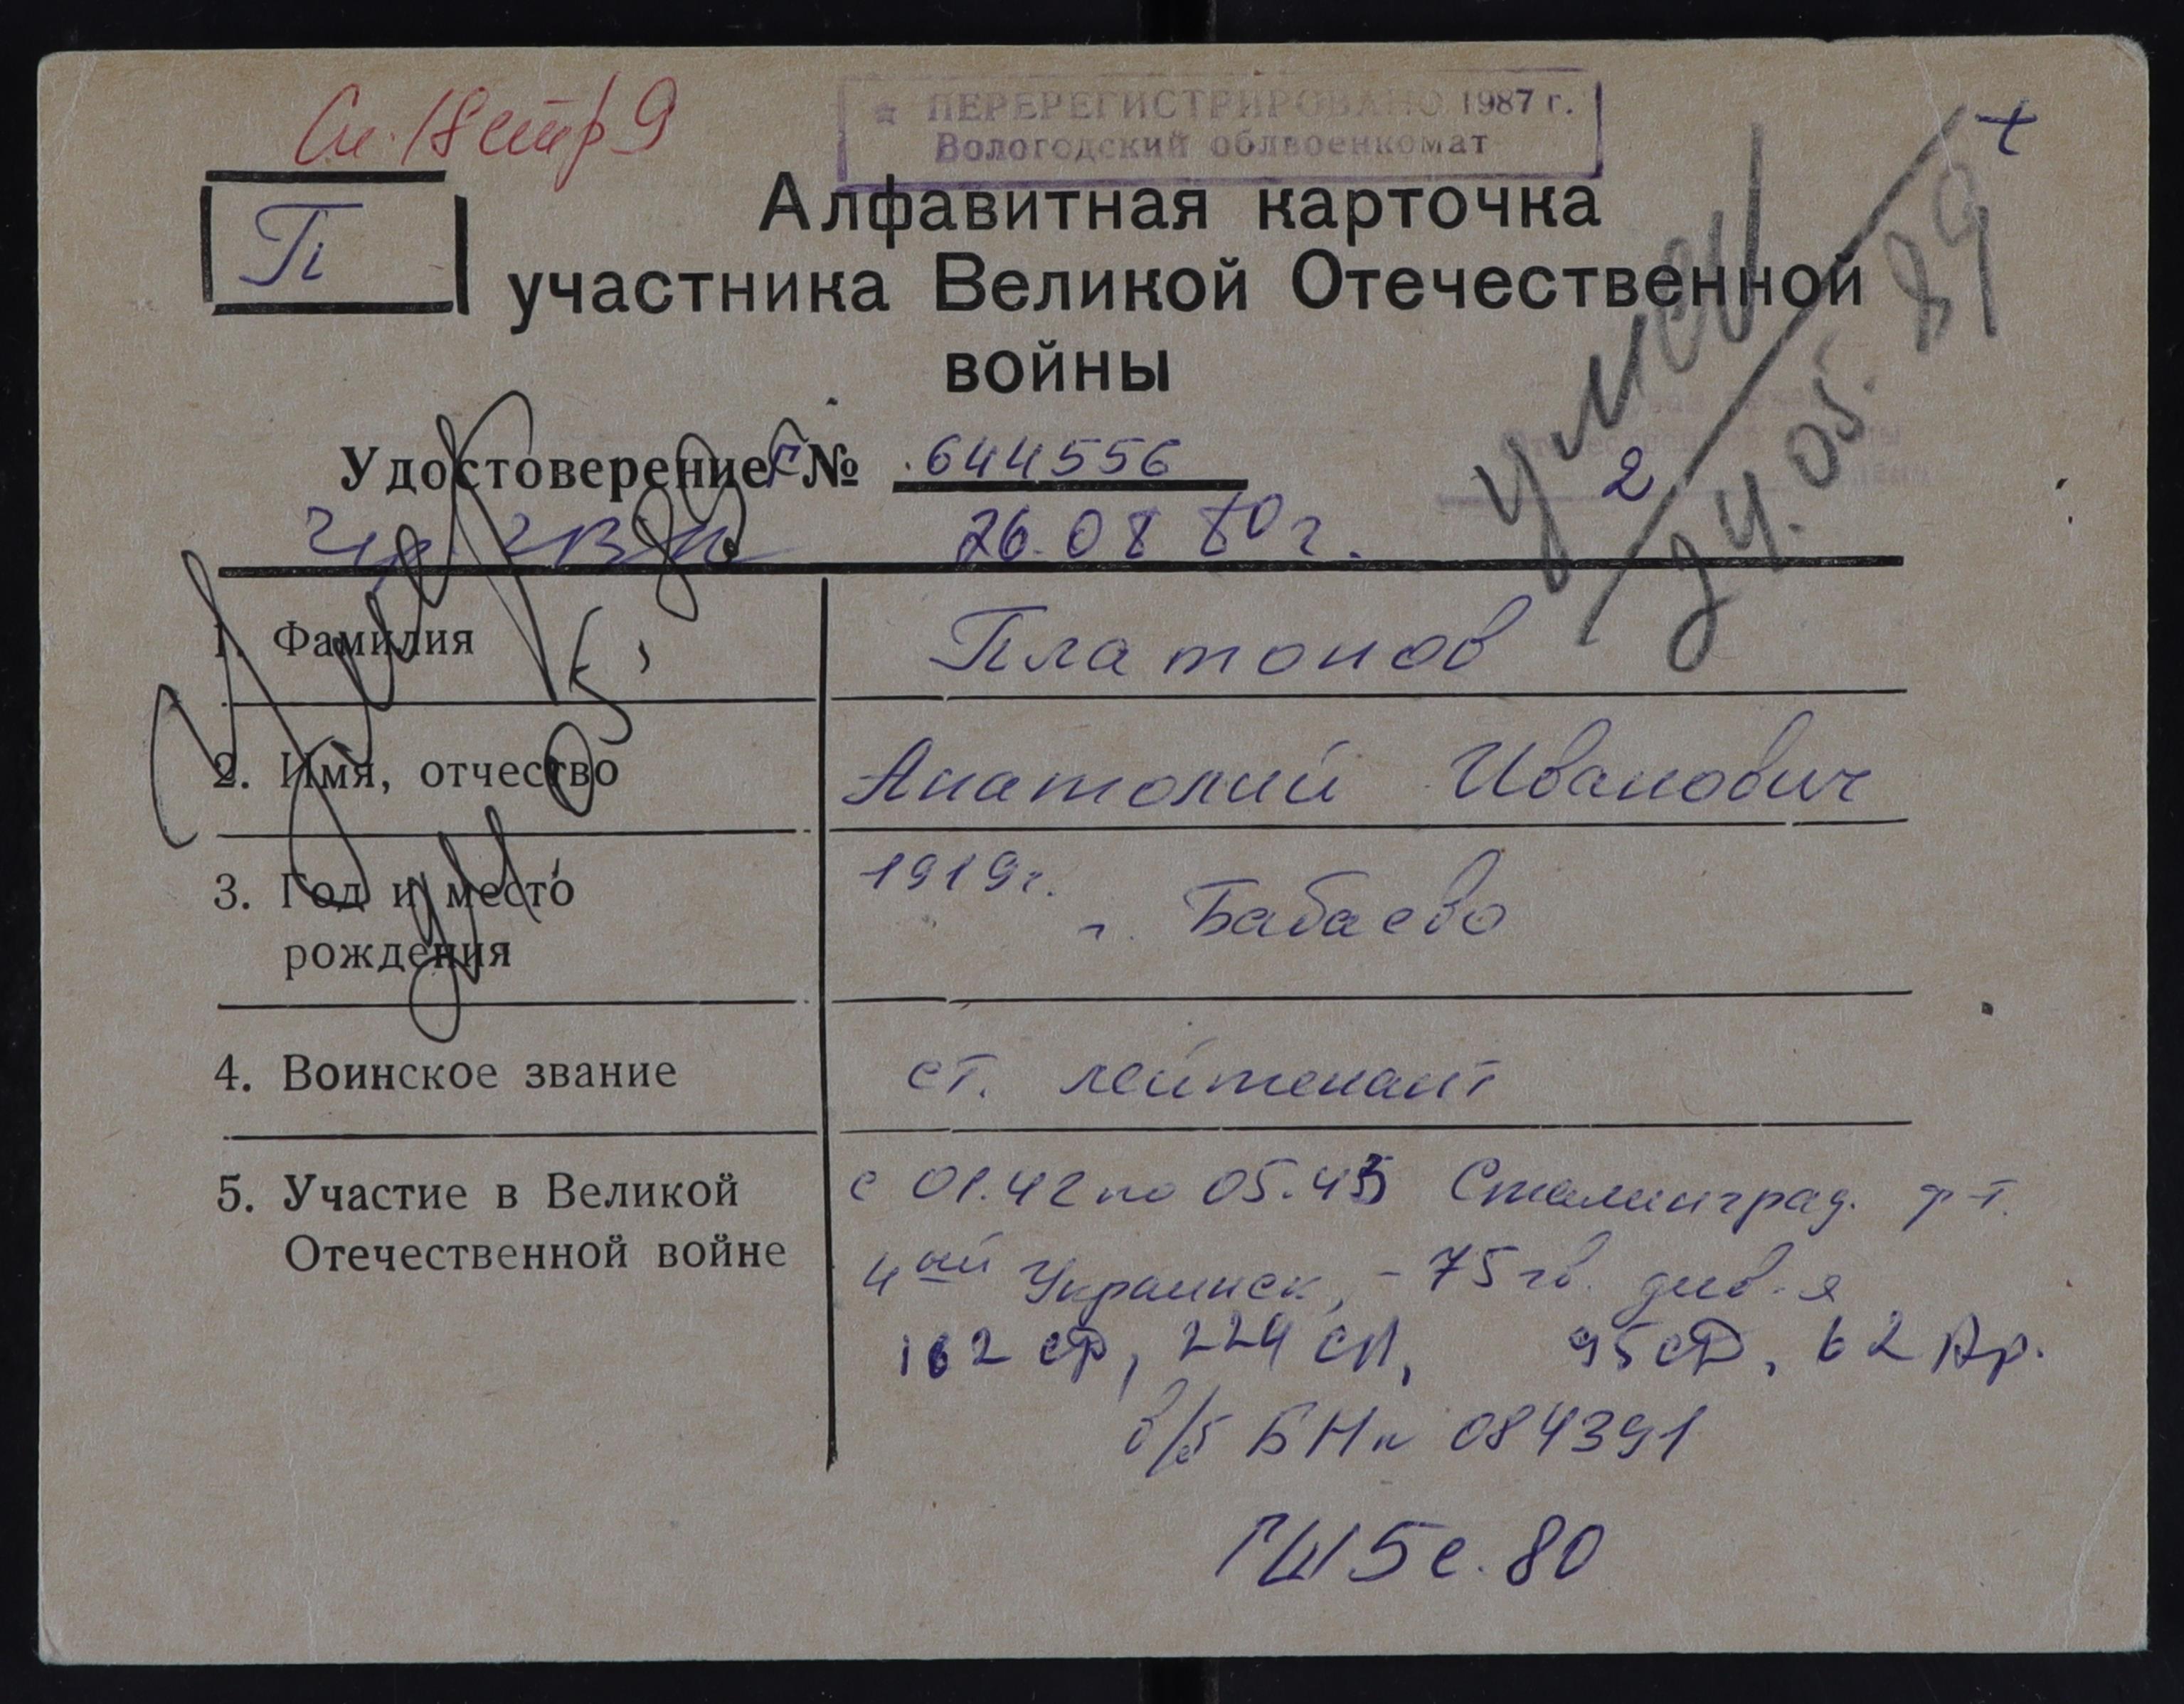 Сп. 18 стр 9
ПЕРЕРЕГИСТРИРОВАНО 1987 г.
Вологодский облвоенкомат
П
Алфавитная карточка
участника Великой Отечественной
войны
умер
24.05.89
Удостоверение Г № 644556
2
26.08 80 г.
Умер
24.05.89
1. Фамилия Платонов
2. Имя, отчество Анатолий Иванович
3. Год и место 1919 г.
рождения г. Бабаево
4. Воинское звание ст. лейтенант
5. Участие в Великой с 01.42 по 05.45 Сталинград. фт.
Отечественной войне 4ый Украинск, - 75 гв. див-я
162 сд, 224 сп, 95 сд, 62 Ар.
в/б БН № 084391
ГШ 5 с. 80